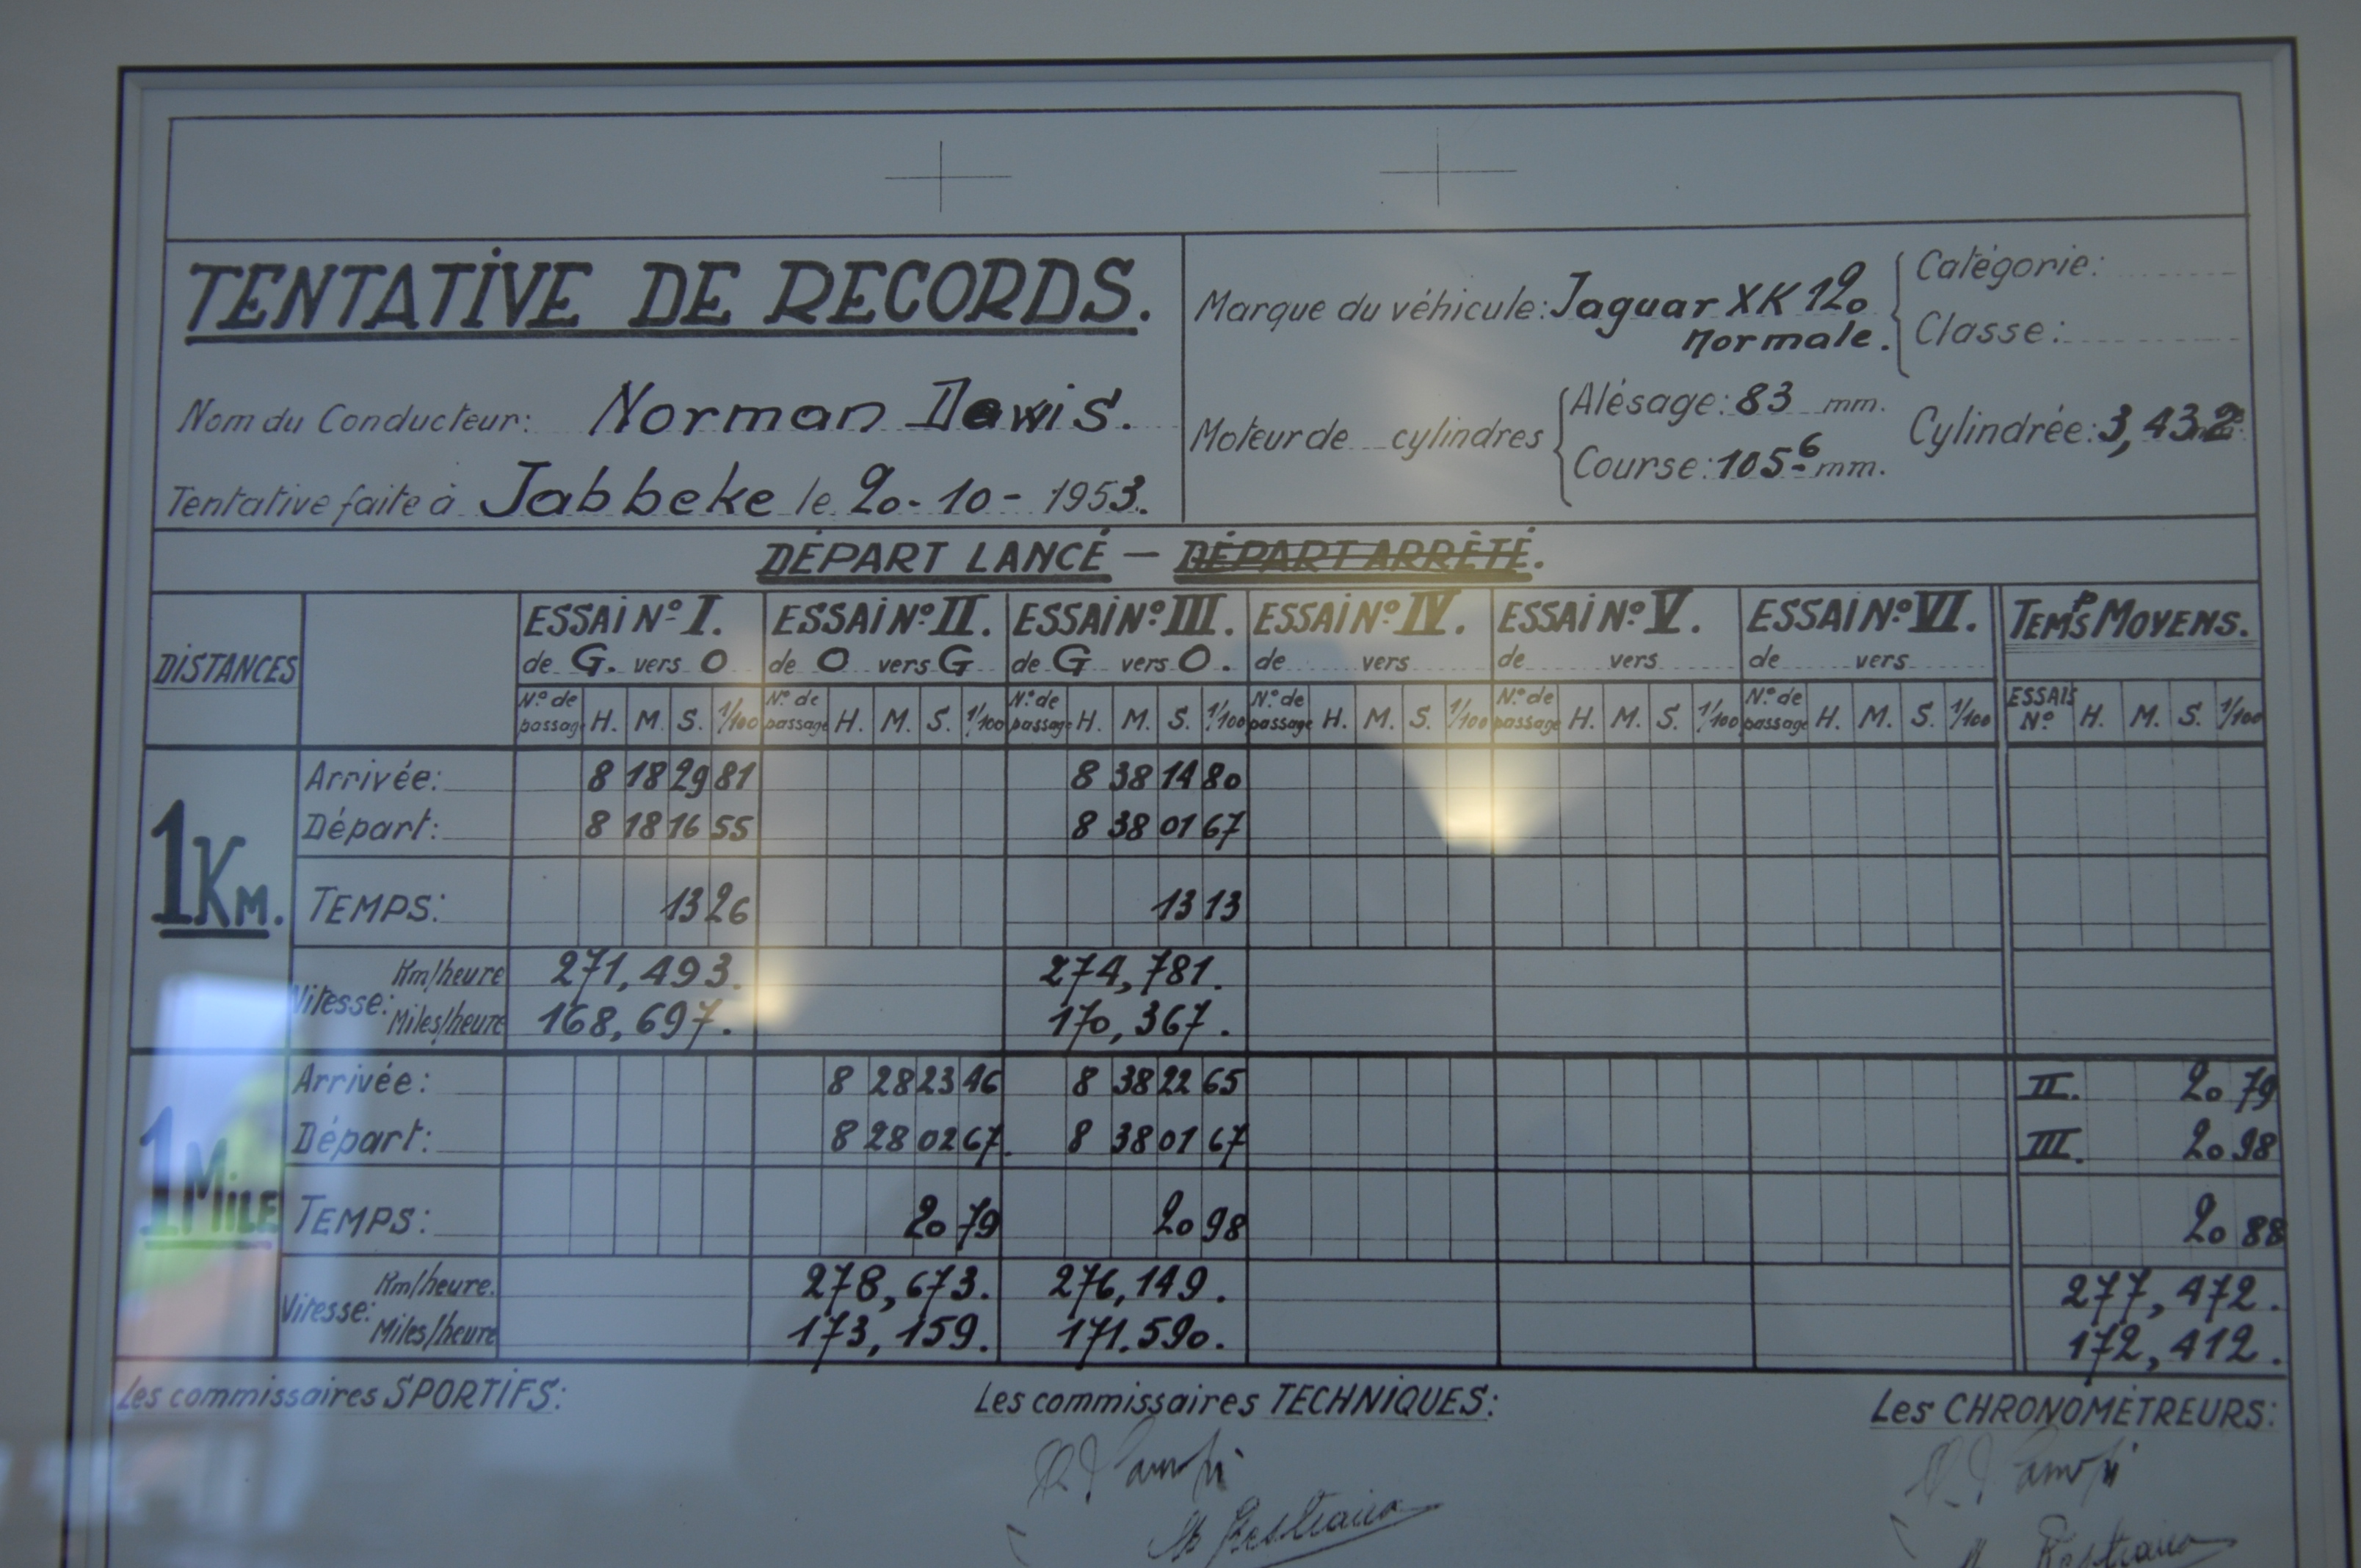 TENTATIVE DE RECORDS.
Nom du Conducteur: Norman Dawis.
Tentative faite à Jabbeke le 20-10-1953.
Marque du véhicule: Jaguar XK 120
Normale.
Catégorie:
Classe:
Moteur de cylindres
Alésage: 83 mm.
Course: 105-6 mm.
Cylindrée: 3,432
DÉPART LANCÉ — DÉPART ARRÊTÉ.
DISTANCES ESSAI Nº I. ESSAI Nº II. ESSAI Nº III. ESSAI Nº IV. ESSAI Nº V. ESSAI Nº VI. TEMPS MOYENS.
de G. vers O de O vers G de G vers O. de vers de vers de vers
Nº de passage H. M. S. 1/100 Nº de passage H. M. S. 1/100 Nº de passage H. M. S. 1/100 Nº de passage H. M. S. 1/100 Nº de passage H. M. S. 1/100 Nº de passage H. M. S. 1/100 ESSAIS Nº H. M. S. 1/100
1 KM.
Arrivée: 8 18 29 81 8 38 14 80
Départ: 8 18 16 55 8 38 01 67
TEMPS: 13 26 13 13
Vitesse: Km/heure 271,493. 274,781.
Miles/heure 168,697. 170,367.
1 MILE
Arrivée: 8 28 23 46 8 38 22 65 II. 20 79
Départ: 8 28 02 67. 8 38 01 67 III. 20 98
TEMPS: 20 79 20 98 20 88
Vitesse: Km/heure. 278,673. 276,149. 277,472.
Miles/heure 173,159. 171.590. 172,412.
Les commissaires SPORTIFS: Les commissaires TECHNIQUES: Les CHRONOMÉTREURS: